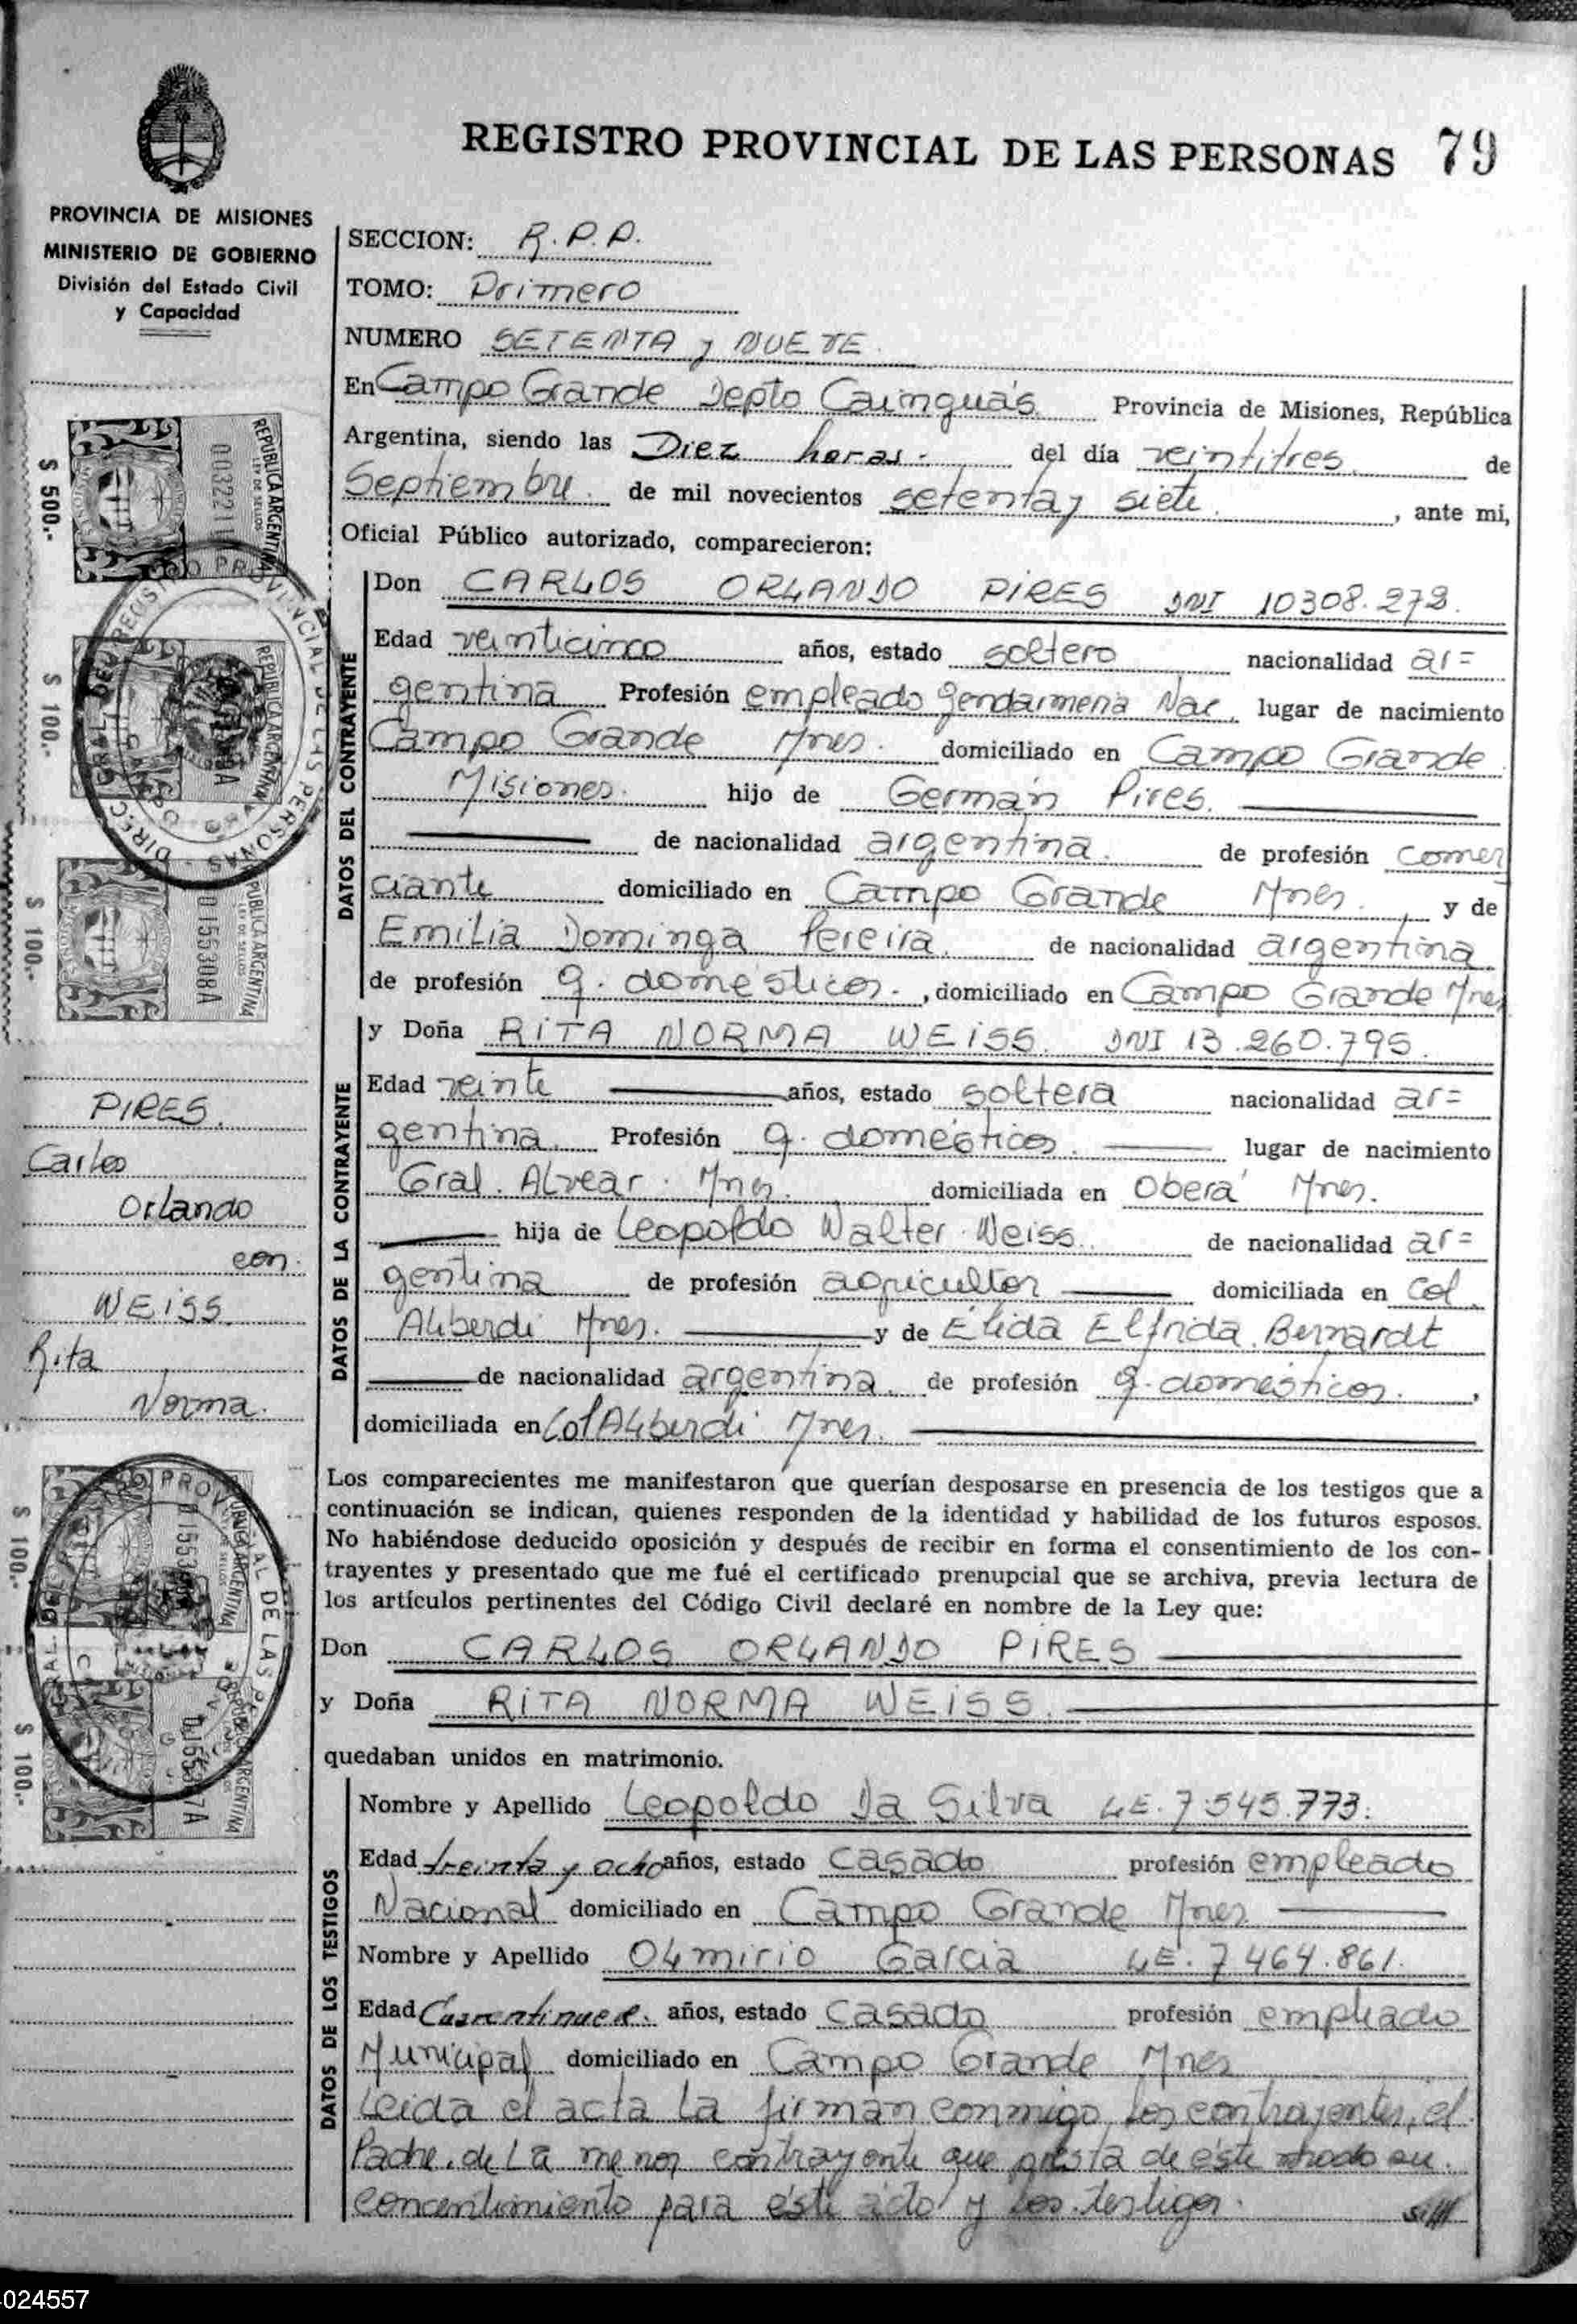 REGISTRO PROVINCIAL DE LAS PERSONAS 79
PROVINCIA DE MISIONES
MINISTERIO DE GOBIERNO
División del Estado Civil
y Capacidad
SECCION: R.P.P.
TOMO: Primero
NUMERO SETENTA y NUEVE
En Campo Grande Depto Cainguás Provincia de Misiones, República
Argentina, siendo las Diez horas.- del día veintitres de
Septiembre. de mil novecientos setenta y siete, ante mi,
Oficial Público autorizado, comparecieron:
DATOS DEL CONTRAYENTE
Don CARLOS ORLANDO PIRES DNI 10308.272.
Edad veinticinco años, estado soltero nacionalidad ar=
gentina Profesión empleado Gendarmeria Nac lugar de nacimiento
Campo Grande Mnes. domiciliado en Campo Grande
Misiones. hijo de Germán Pires.
de nacionalidad argentina. de profesión comer
ciante domiciliado en Campo Grande Mnes. y de
Emilia Dominga Pereira. de nacionalidad argentina
de profesión q. domésticos., domiciliado en Campo Grande Mnes
DATOS DE LA CONTRAYENTE
y Doña RITA NORMA WEISS. DNI 13.260.795.
Edad veinte años, estado soltera nacionalidad ar=
gentina. Profesión q. domésticos. lugar de nacimiento
Gral. Alvear. Mnes. domiciliada en Oberá Mnes.
hija de Leopoldo Walter Weiss. de nacionalidad ar=
gentina de profesión agricultor domiciliada en Col.
Alberdi Mnes. y de Élida Elfrida Bernardt
de nacionalidad argentina. de profesión q. domésticos.,
domiciliada en Col Alberdi Mnes.
Los comparecientes me manifestaron que querían desposarse en presencia de los testigos que a
continuación se indican, quienes responden de la identidad y habilidad de los futuros esposos.
No habiéndose deducido oposición y después de recibir en forma el consentimiento de los con-
trayentes y presentado que me fué el certificado prenupcial que se archiva, previa lectura de
los artículos pertinentes del Código Civil declaré en nombre de la Ley que:
Don CARLOS ORLANDO PIRES
y Doña RITA NORMA WEISS.
quedaban unidos en matrimonio.
DATOS DE LOS TESTIGOS
Nombre y Apellido Leopoldo Da Silva LE. 7.545.773.
Edad treinta y ocho años, estado casado profesión empleado
Nacional domiciliado en Campo Grande Mnes
Nombre y Apellido Olmirio Garcia LE. 7 464.861.
Edad años, estado casado profesión empleado
Municipal domiciliado en Campo Grande Mnes
Leida el acta la firman conmigo los contrayentes, el
Padre de la menor contrayente que presta de éste modo su
concentimiento para éste acto y los testigos.
PIRES.
Carlos
Orlando
con
WEISS.
Rita
Norma.
$ 500.-
REPUBLICA ARGENTINA
LEY DE SELLOS
$ 100.-
REPUBLICA ARGENTINA
$ 100.-
REPUBLICA ARGENTINA
LEY DE SELLOS
0155308A
DIREC. GRAL. DEL REGISTRO PROVINCIAL DE LAS PERSONAS
$ 100.-
$ 100.-
024557